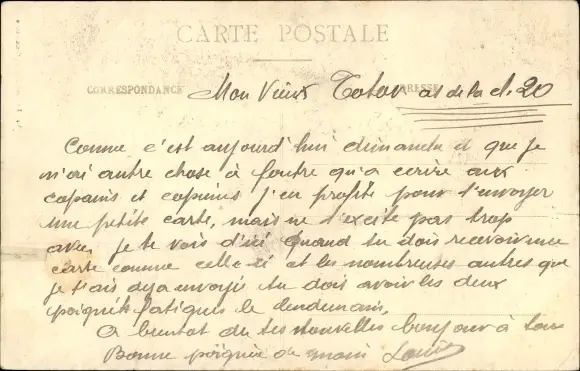 CARTE POSTALE
CORRESPONDANCE ADRESSE
Mon Vieux Totor as de la cl. 20
Comme c'est aujourd'hui dimanche et que je
n'ai autre chose à foutre qu'à ecrire aux
copains et copines j'en profite pour t'envoyer
une petite carte, mais ne t'excite pas trop
avec, je te vois d'ici quand tu dois recevoir une
carte comme celle-ci et les nombreuses autres que
je t'ais deja envoyé tu dois avoir les deux
poignets fatigués le lendemain.
A bientot de tes nouvelles bonjour à tous
Bonne poignée de main Louis